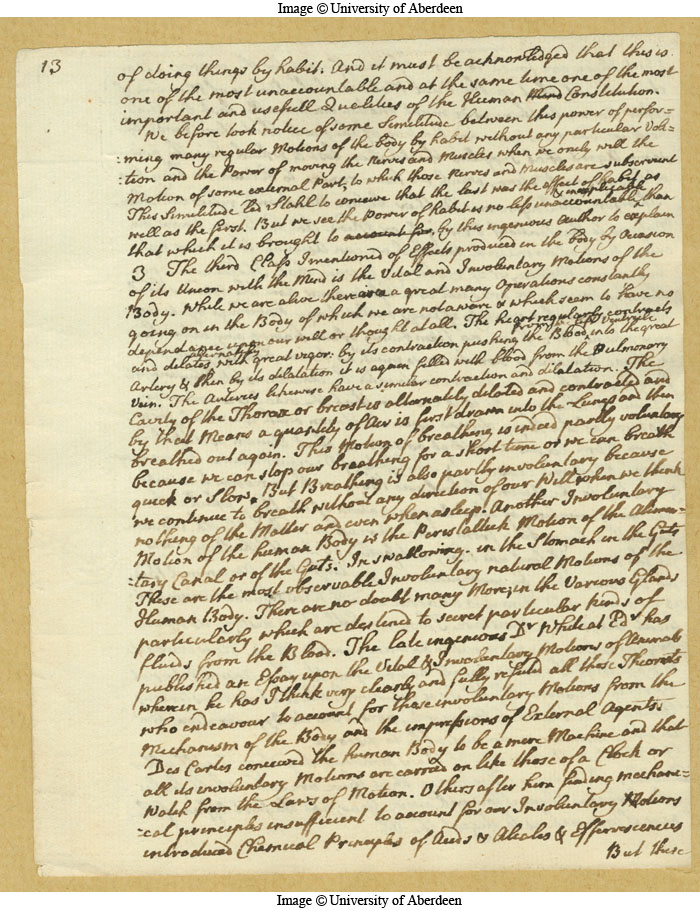 Image © University of Aberdeen
13
of doing things by habit. And it must be acknowledged that this is
one of the most unaccountable and at the same time one of the most
important and usefull Qualities of the Human Mind Constitution.
We before took notice of some Similitude between this power of perfor-
:ming many regular Motions of the body by habit without any particular Voli-
:tion and the Power of moving the Nerves and Muscles when we only will the
Motion of some external Part, to which those Nerves and Muscles are subservient
This Similitude led Stahl to conceive that the last was the effect of habit as
well as the first. But we see the Power of habit is no less unaccountable & inexplicable than
that which it is brought to account for, by this ingenious Author to explain
3 The third Class I mentioned of Effects produced in the body by Occasion
of its Union with the Mind is the Vital and Involuntary Motions of the
Body. While we are alive there are a great many Operations constantly
going on in the Body of which we are not aware & which seem to have no
dependance upon our will or thought at all. The heart regularly contracts
and dilates alternatly with great vigor: by its contraction pushing the Blood from its left Ventricle into the great
Artery & then by its dilatation it is again filled with blood from the Pulmonary
Vein. The Arteries likewise have a similar contraction and dilatation. The
Cavity of the Thorax or breast is alternatly dilated and contracted and
by that Means a quantity of Air is first drawn into the Lungs and then
breathed out again. This Motion of breathing is indeed partly voluntary
because we can stop our breathing for a short time or we can breath
quick or Slow. But Breathing is also partly involuntary because
we continue to breath without any direction of our Will when we think
nothing of the Matter and even when asleep. Another Involuntary
Motion of the human Body is the Peristaltick Motion of the Alimen-
:tary Canal or of the Guts. In swallowing. in the Stomach in the Guts
These are the most observable Involuntary natural Motions of the
Human Body. There are no doubt many More, in the Various Glands
particularly which are destined to secret particular kinds of
fluids from the Blood. The late ingenious Dr Whit at Edr has
published an Essay upon the Vital & Involuntary Motions of Animals
wherein he has I think very clearly and fully refuted all those Theorists
who endeavour to account for those involuntary Motions from the
Mechanism of the Body and the impressions of External Agents.
Des Cartes conceived the human Body to be a mere Machine and that
all its involuntary Motions are carried on like those of a Clock or
Watch from the Laws of Motion. Others after him finding mechani-
cal principles insufficient to account for our Involuntary Motions
introduced Chemical Principles of Acids & Alcales & Effervescences
But these
Image © University of Aberdeen